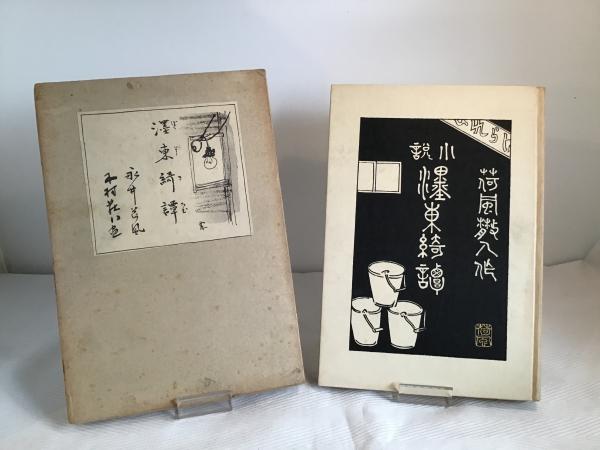 濹東綺譚
永井荷風
木村荘八画
荷風散人作
小説
濹東綺譚